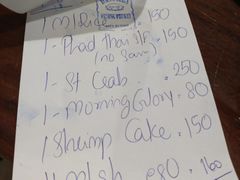 1 M Rice . 150
1 - Phad Thai . 150
(no
1 - St Crab . 250
1 - Morning Glory . 80
1 Shrimp Cake . 150
@80 = 160